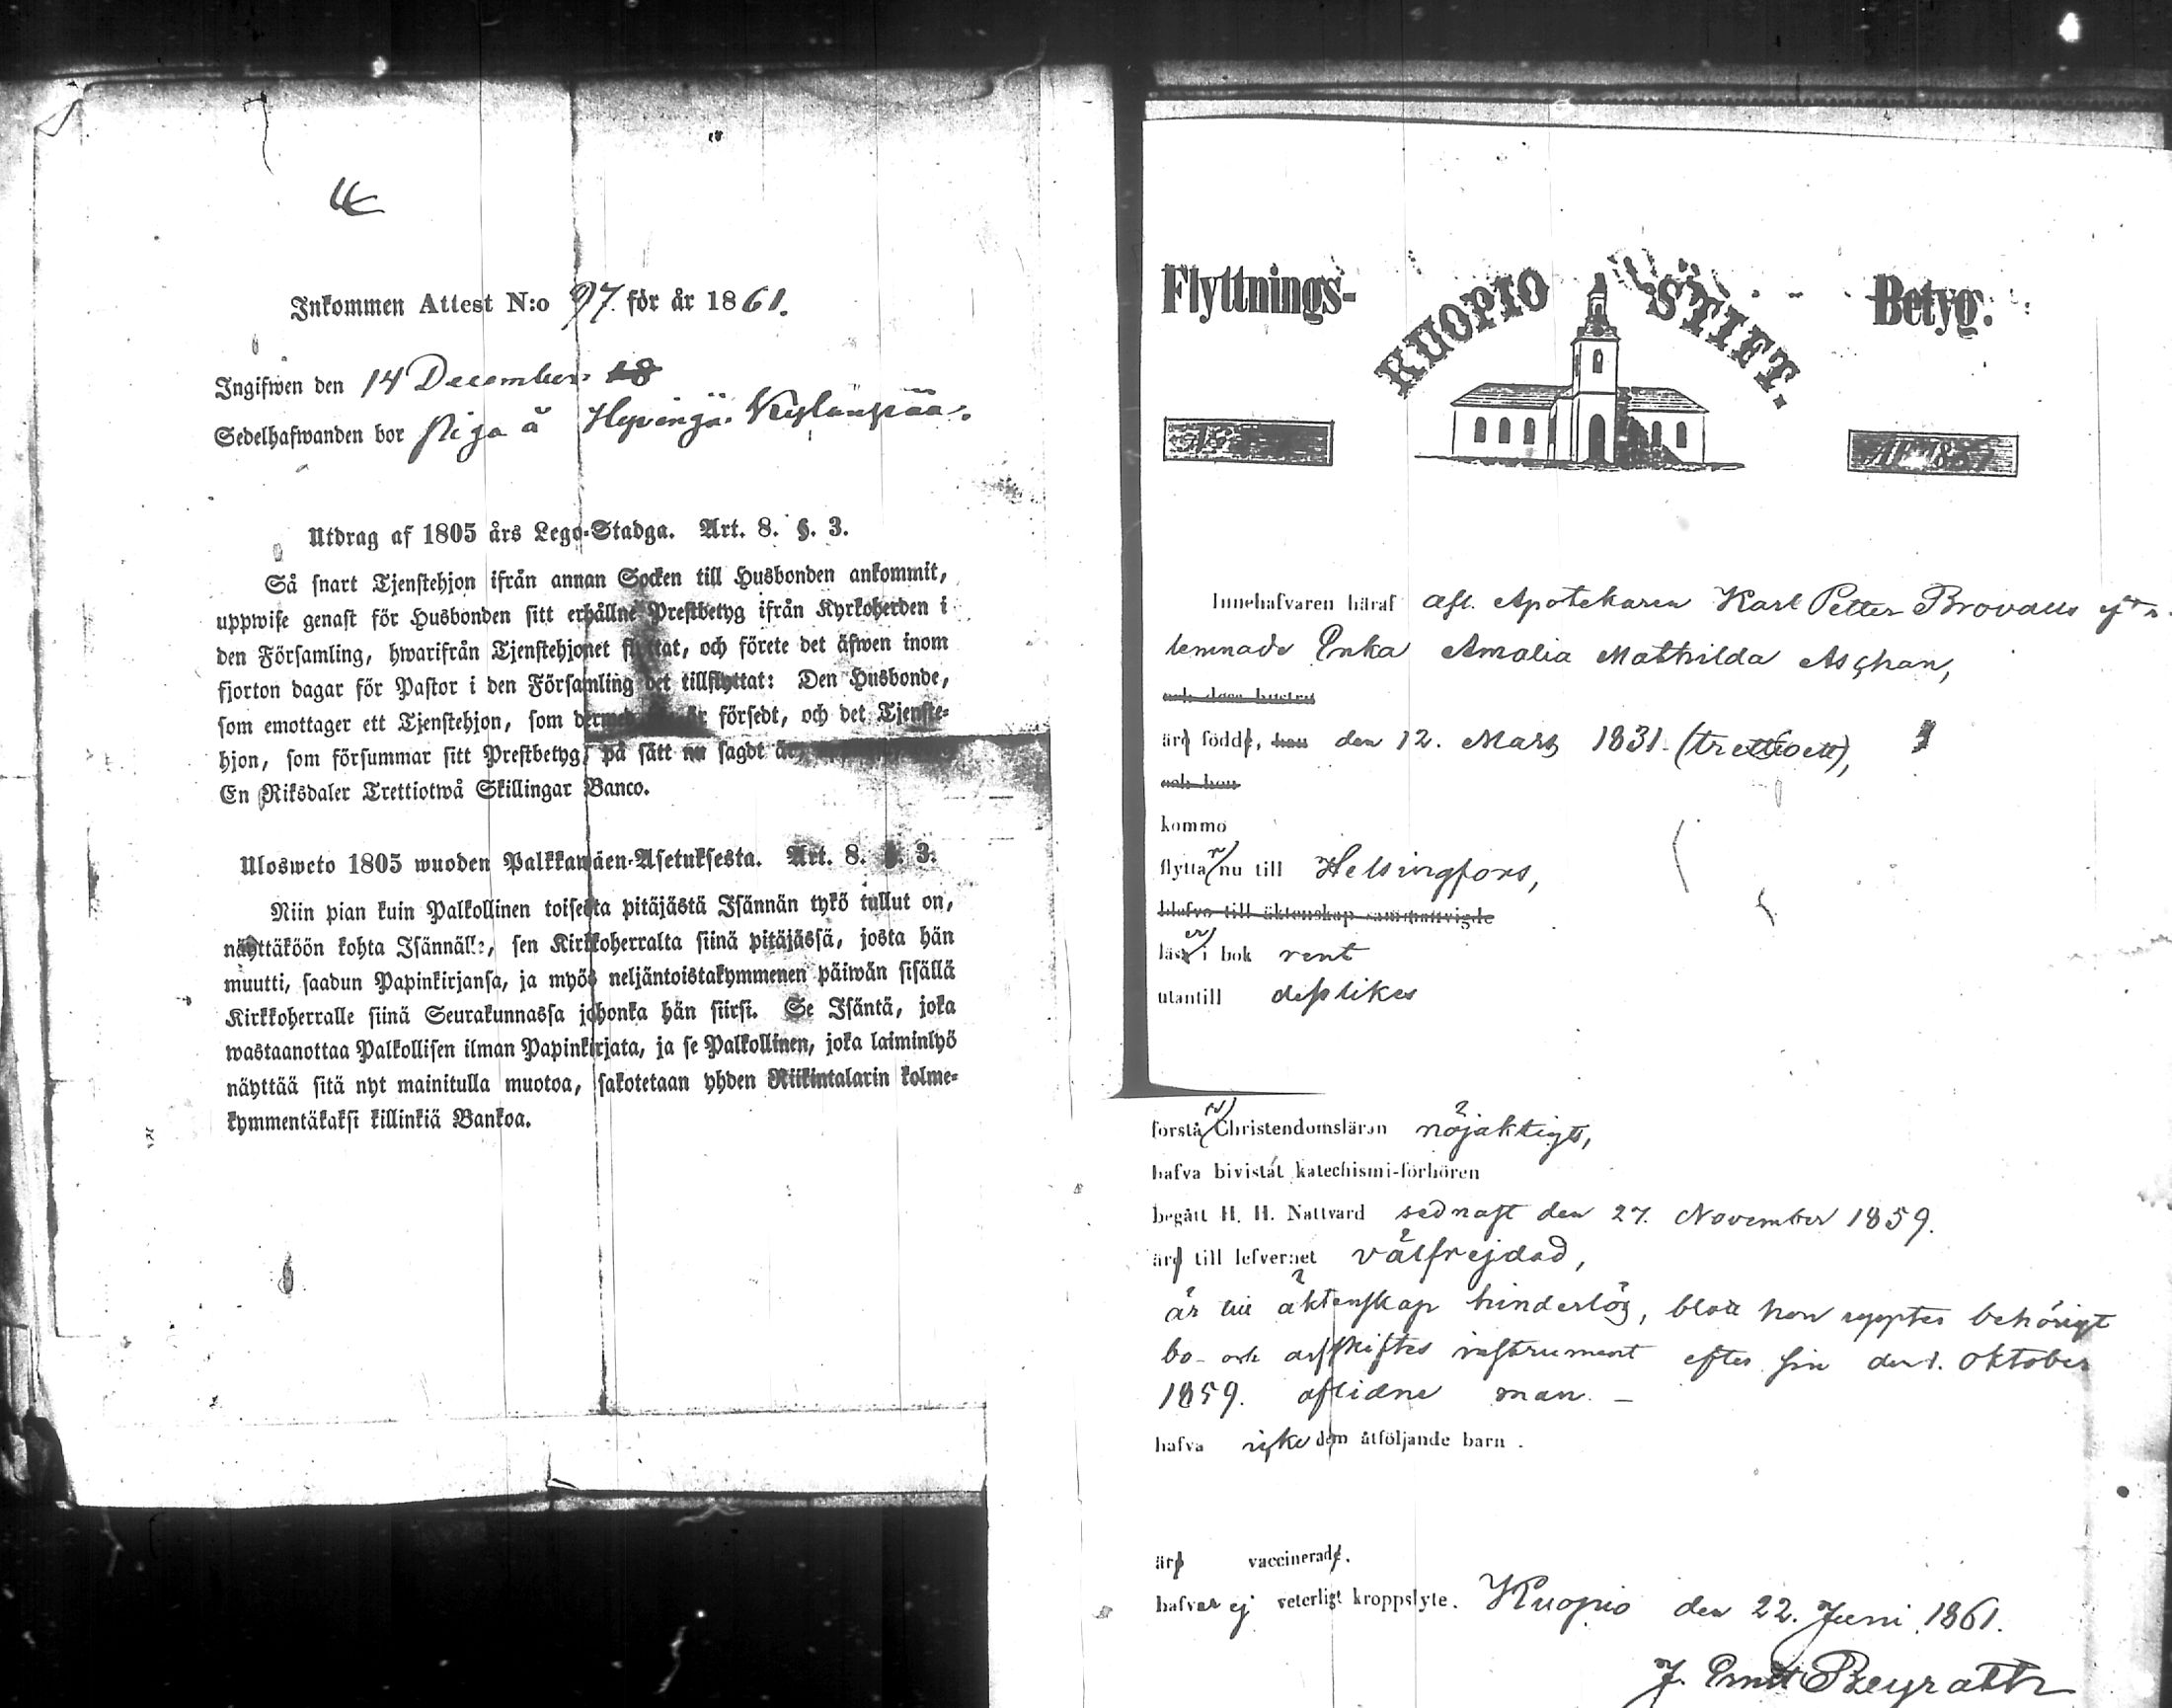 Inkommen Attest N:o 97. för år 1861.
Ingifwen den 14 December 18
Sedelhafwanden bor piga å Hyvingä Kylänpää.
Utdrag af 1805 års Lego-Stadga. Art. 8. §. 3.
Så snart Tjenstehjon ifrån annan Socken till Husbonden ankommit,
uppwise genast för Husbonden sitt erhållne Prestbetyg ifrån Kyrkoherden i
den Församling, hwarifrån Tjenstehjonet flyttat, och förete det äfwen inom
fjorton dagar för Pastor i den Församling det tillflyttat: Den Husbonde,
som emottager ett Tjenstehjon, som dermed är försedt, och det Tjenste-
hjon, som försummar sitt Prestbetyg, på sätt nu sagdt är,
En Riksdaler Trettiotwå Skillingar Banco.
Ulosweto 1805 wuoden Palkkawäen-Asetuksesta. Art. 8. §. 3.
Niin pian kuin Palkollinen toisesta pitäjästä Isännän tykö tullut on,
näyttäköön kohta Isännälle, sen Kirkkoherralta siinä pitäjässä, josta hän
muutti, saadun Papinkirjansa, ja myös neljäntoistakymmenen päiwän sisällä
Kirkkoherralle siinä Seurakunnassa johonka hän siirsi. Se Isäntä, joka
wastaanottaa Palkollisen ilman Papinkirjata, ja se Palkollinen, joka laiminlyö
näyttää sitä nyt mainitulla muotoa, sakotetaan yhden Riikintalarin kolme-
kymmentäkaksi killinkiä Bankoa.
Flyttnings- KUOPIO STIFT. Betyg.
Innehafvaren häraf afl. Apotekaren Karl Petter Brovalls
lemnade Enka Amalia Mathilda Aschan,
och dess hustru
äro födde, han den 12. Mars 1831. (trettioett),
och hon
kommo
flytta nu till Helsingfors,
blefvo till äktenskap sammanvigde
läsa i bok rent
utantill desslikes
förstå Christendomsläran nöjaktigt,
hafva bivistat katechismi-förhören
begått H. H. Nattvard sednast den 27. November 1859.
äro till lefvernet välfrejdad,
är till äktenskap hinderlös, blott hon uppter behörigt
bo- och arfskiftes instrument efter sin den 1. oktober
1859. aflidne man. –
hafva dem åtföljande barn.
äro vaccinerade.
hafva ej veterligt kroppslyte. Kuopio den 22. Juni 1861.